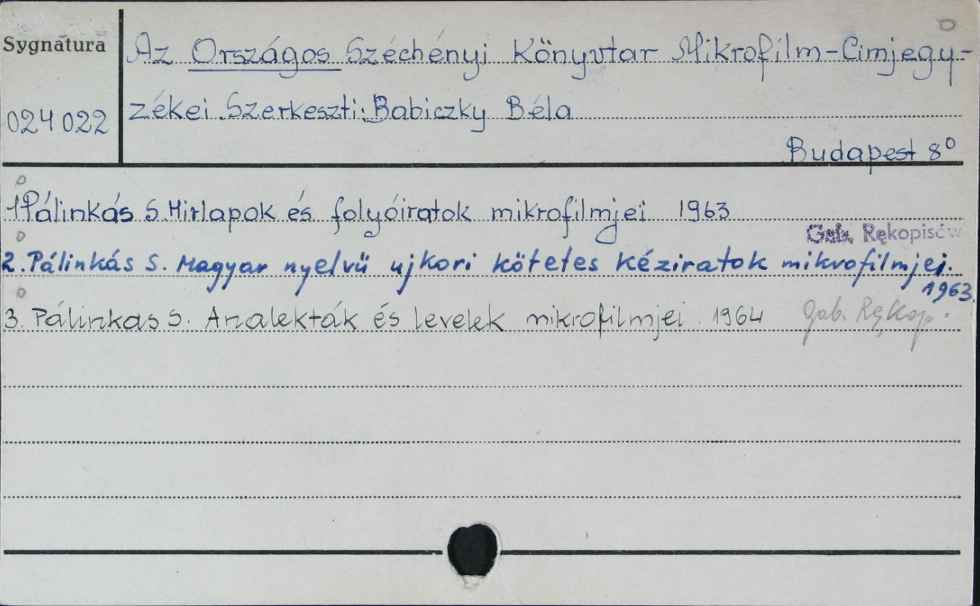 Sygnatura
024022
Az Országos Széchényi Könyvtar Mikrofilm-Cimjegy-
zékei. Szerkeszti: Babiczky Béla
Budapest 8°
1 Pálinkás S. Hirlapok és folyóiratok mikrofilmjei 1963
Gab. Rękopisów
2. Pálinkás S. Magyar nyelvü ujkori kötetes kéziratok mikrofilmjei.
1963
3. Pálinkas S. Analekták és levelek mikrofilmjei. 1964 Gab. Rękop.